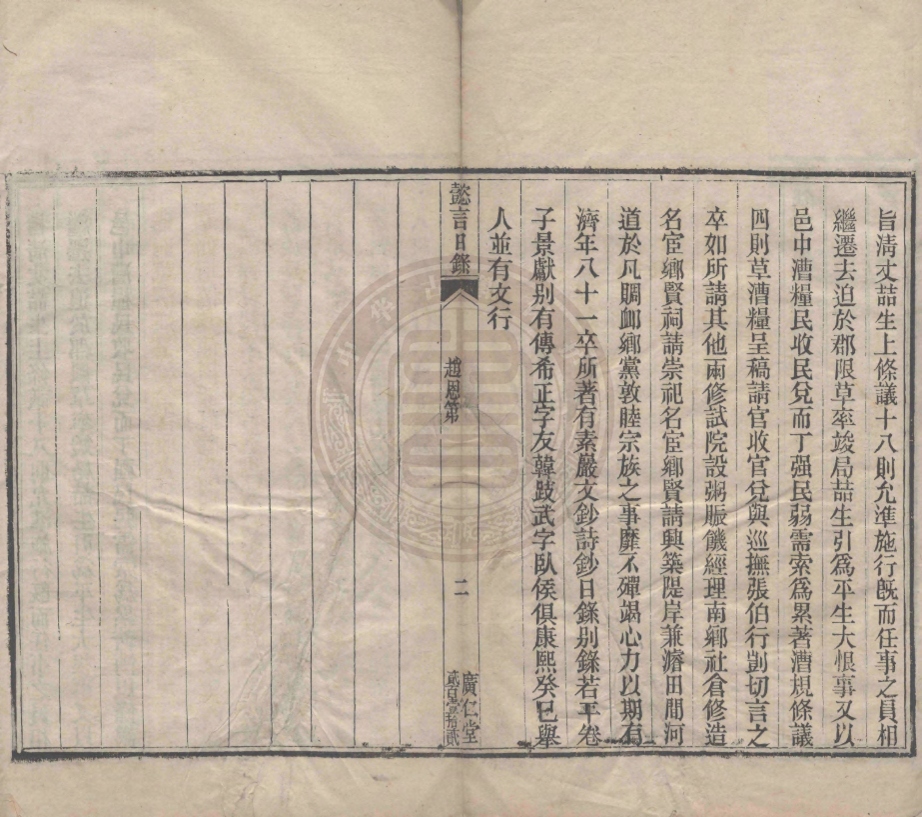 旨淸丈喆生上條議十八則允準施行旣而任事之員相
繼遷去迫於郡限草率竣局喆生引爲平生大恨事又以
邑中漕糧民收民兌而丁强民弱需索爲累著漕規條議
四則草漕糧呈稿請官收官兌與巡撫張伯行剴切言之
卒如所請其他兩修試院設粥賑饑經理南鄉社倉修造
名宦鄉賢祠請崇祀名宦鄉賢請興築隄岸兼濬田間河
道於凡賙卹鄉黨敦睦宗族之事靡不殫竭心力以期有
濟年八十一卒所著有素巖文鈔詩鈔日錄别錄若干卷
子景獻别有傳希正字友韓歧武字臥侯俱康熙癸巳舉
人並有文行
懿言日錄
趙恩第
二
廣仁堂